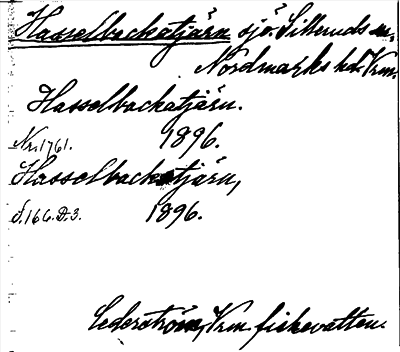 Hasselbackatjärn sjö. Silleruds sn.
Nordmarks hd. Vrm.
Hasselbackatjärn.
Nr. 1761. 1896.
Hasselbackatjärn,
S. 166. D. 3. 1896.
Cederström, Vrm. fiskevatten.